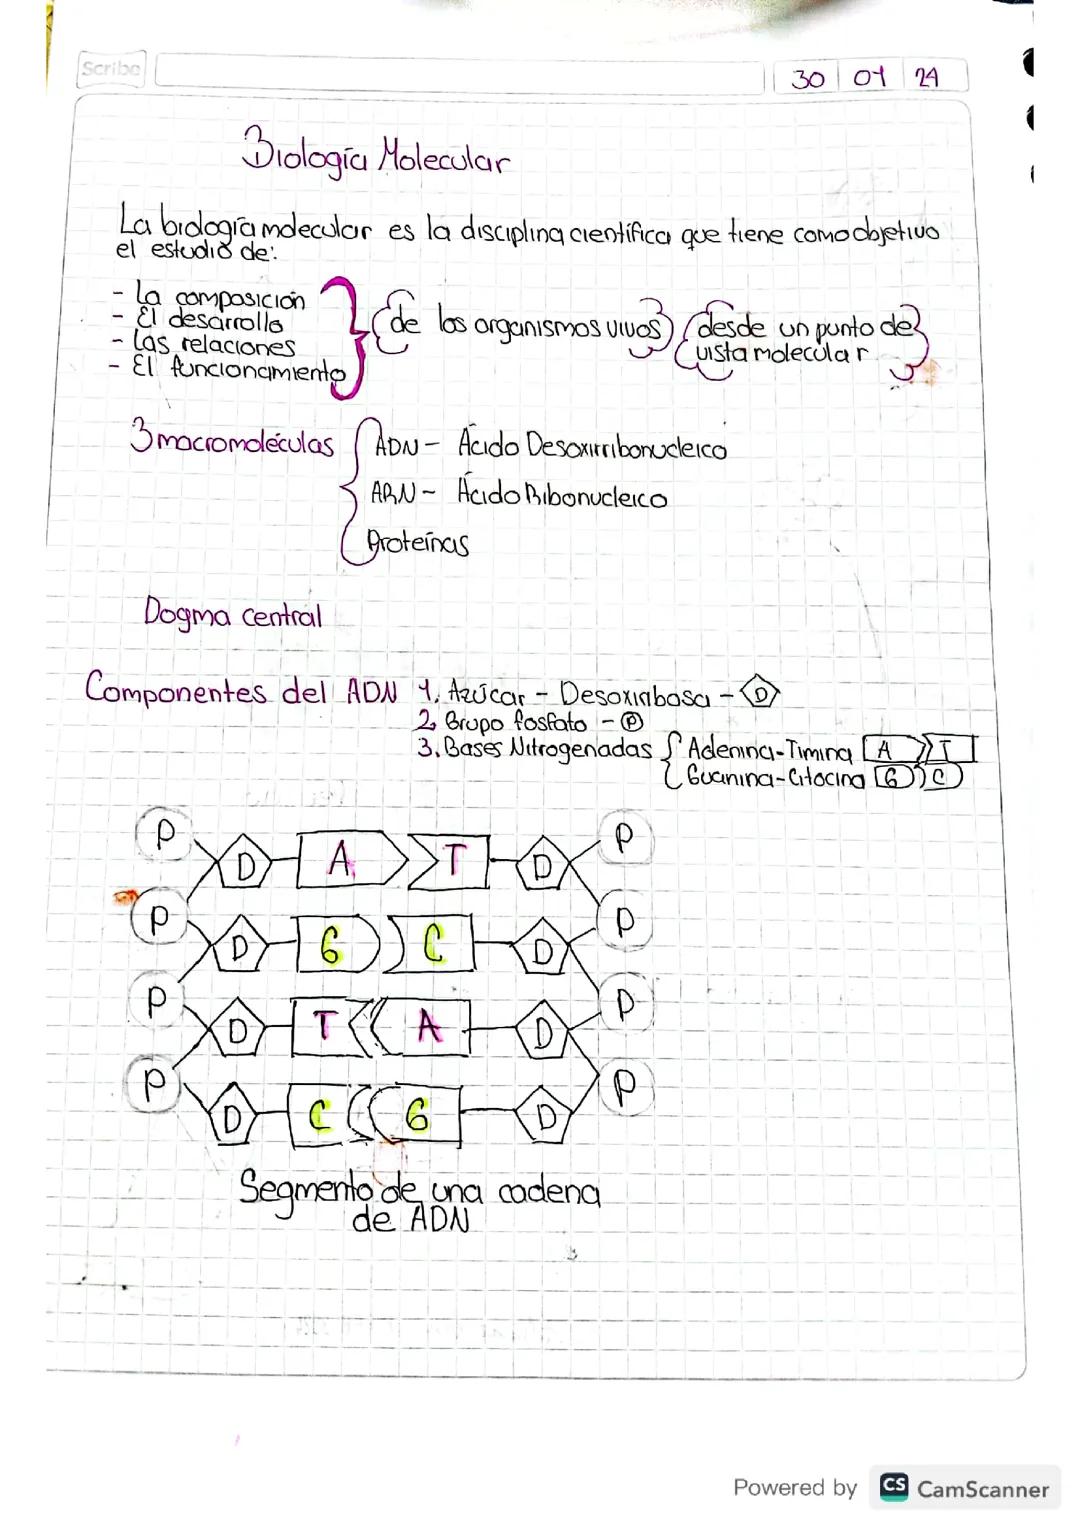 Scribe
30 01 24
Biología Molecular
La biología molecular es la disciplina científica que tiene como objetivo
el estudio de:
- La composición
- El desarrollo
- Las relaciones
- El funcionamiento
de los organismos vivos
desde un punto de
vista molecular
3 macromoléculas
ADN - Ácido Desoxirribonucleico
ARN - Ácido Ribonucleico
Proteínas
Dogma central
Componentes del ADN 1. Azúcar - Desoxirabosa - D
2. Grupo fosfato - P
3. Bases Nitrogenadas Adenina-Timina A T
Guanina-Citocina G C
P P
D A T D
P P
D G C D
P P
D T A D
P P
D C G D
Segmento de una cadena
de ADN
Powered by CS CamScanner